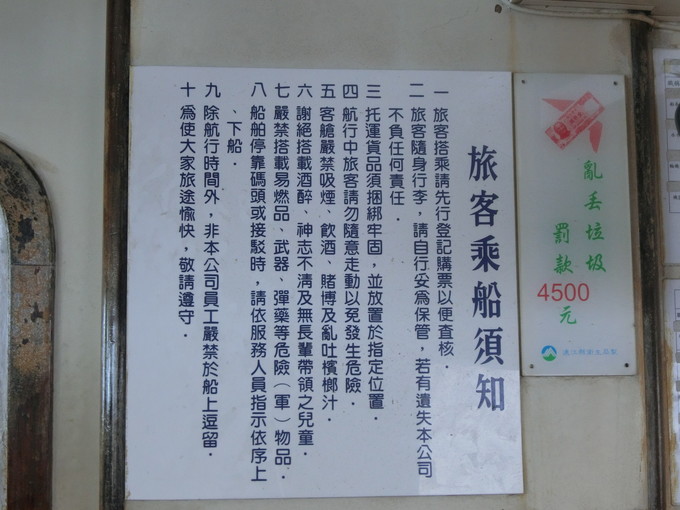 旅客乘船須知
一 旅客搭乘請先行登記購票以便查核．
二 旅客隨身行李，請自行妥為保管，若有遺失本公司
不負任何責任．
三 托運貨品須捆綁牢固，並放置於指定位置．
四 航行中旅客請勿隨意走動以免發生危險．
五 客艙嚴禁吸煙、飲酒、賭博及亂吐檳榔汁．
六 謝絕搭載酒醉、神志不清及無長輩帶領之兒童．
七 嚴禁搭載易燃品、武器、彈藥等危險（軍）物品．
八 船舶停靠碼頭或接駁時，請依服務人員指示依序上
、下船．
九 除航行時間外，非本公司員工嚴禁於船上逗留．
十 為使大家旅途愉快，敬請遵守．
亂丟垃圾
罰款
4500
元